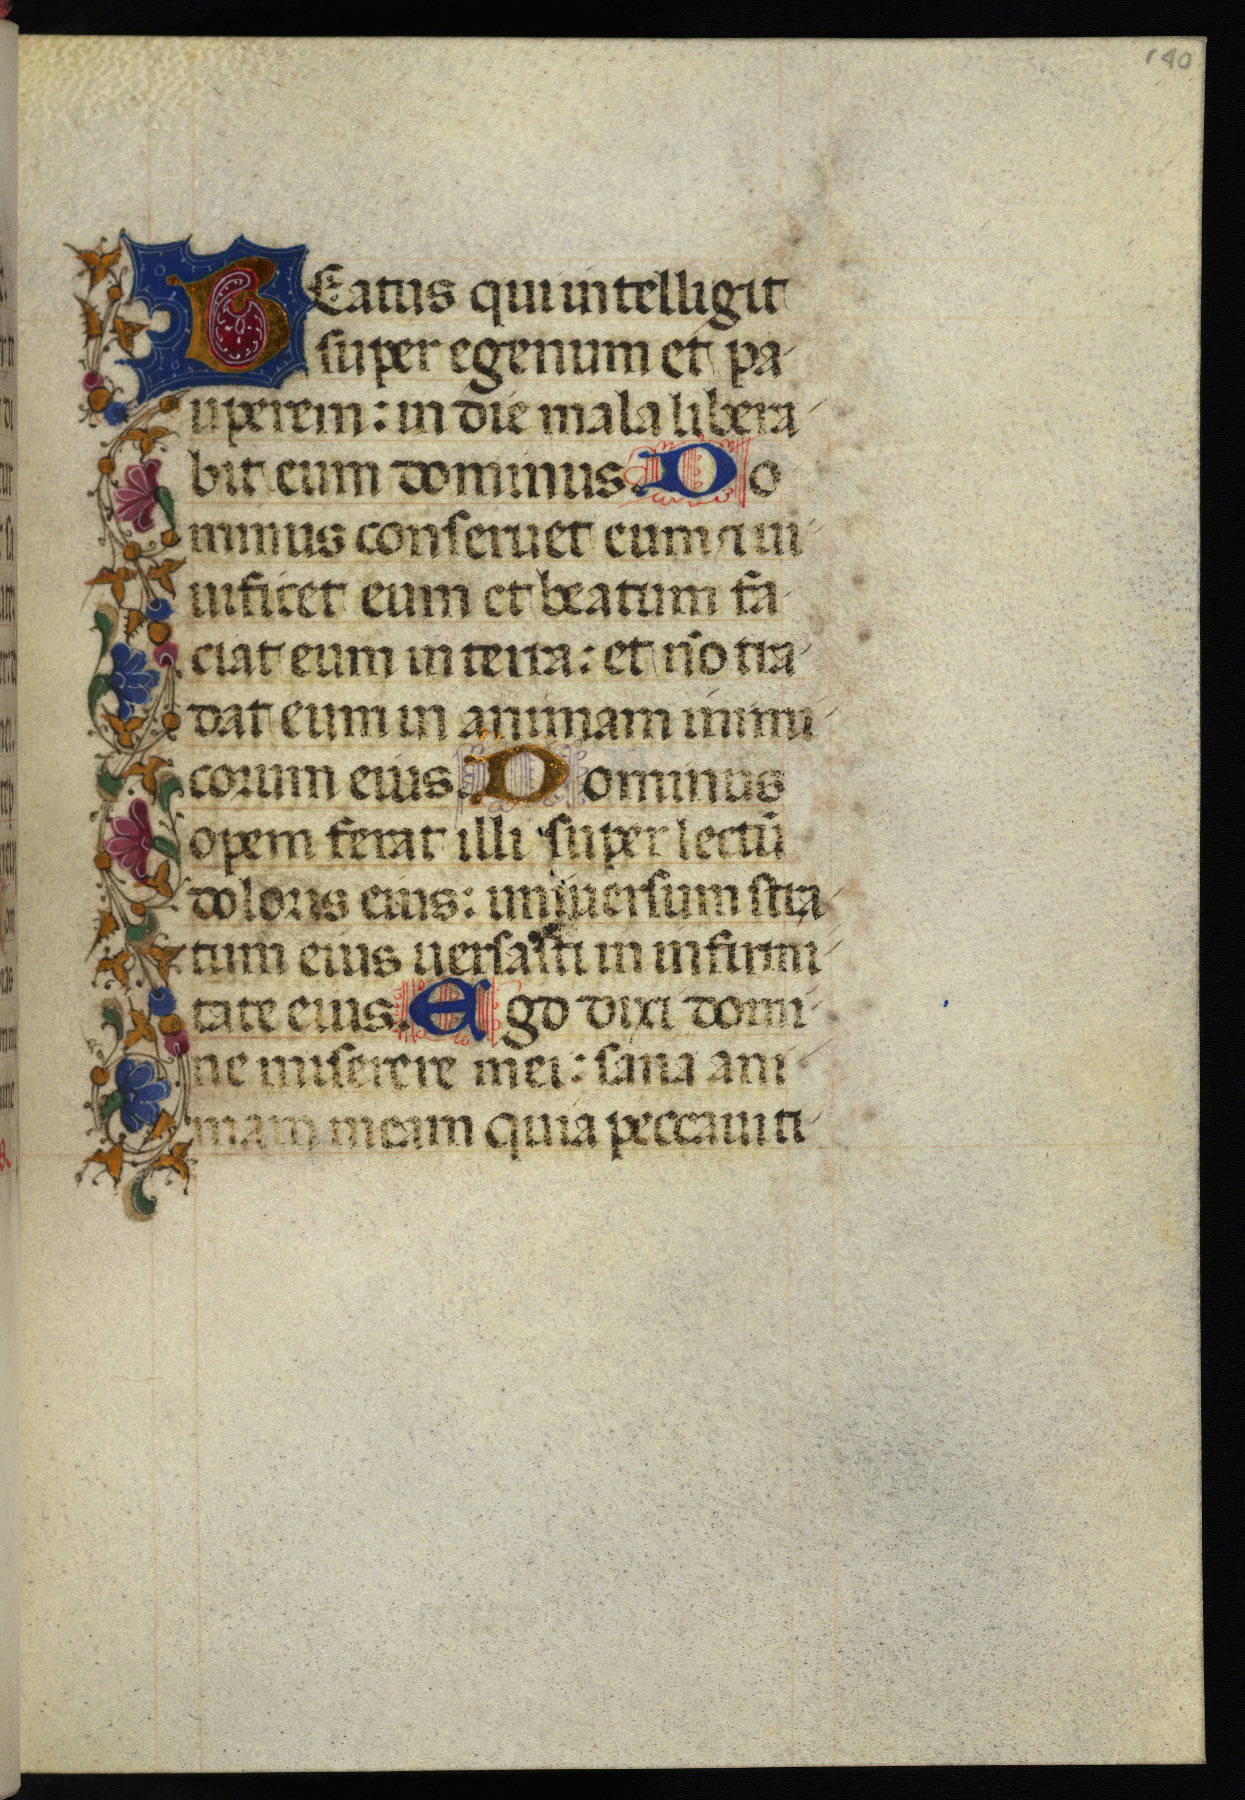 140
BEatus qui intelligit
super egenum et pa
uperem: in die mala libera
bit eum dominus. Do
minus conseruet eum ⁊ ui
uificet eum et beatum fa
ciat eum in terra: et no tra
dat eum in animam inimi
corum eius. Dominus
opem ferat illi super lectū
doloris eius: uniuersum stra
tum eius uersasti in infirmi
tate eius. Ego dixi domi
ne miserere mei: sana ani
mam meam quia peccaui ti